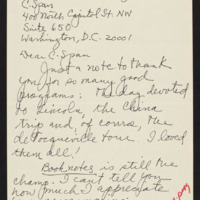 C-Span
400 North Capitol St. NW
Suite 650
Washington, D.C. 20001
Dear C-Span
Just a note to thank
you for so many good
programs: The day devoted
to Lincoln, the China
trip and, of course, the
de Tocqueville tour. I loved
them all!
Booknotes is still the
champ. I can't tell you
how much I appreciate